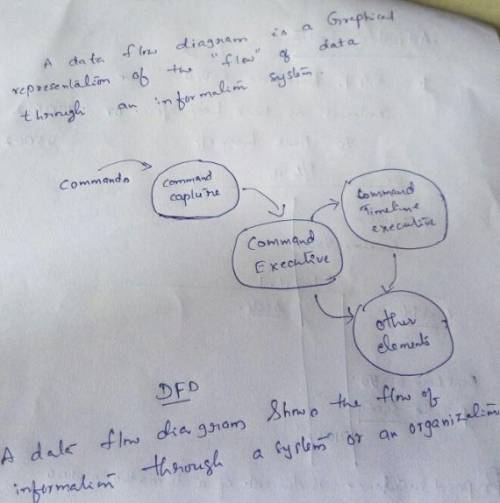 A data flow diagram is a Graphical
representation of the "flow" of data
through an information system.
Commands
Command
Capture
Command
Executive
Command
Timeline
executive
other
elements
DFD
A data flow diagram Shows the flow of
information through a system or an organization